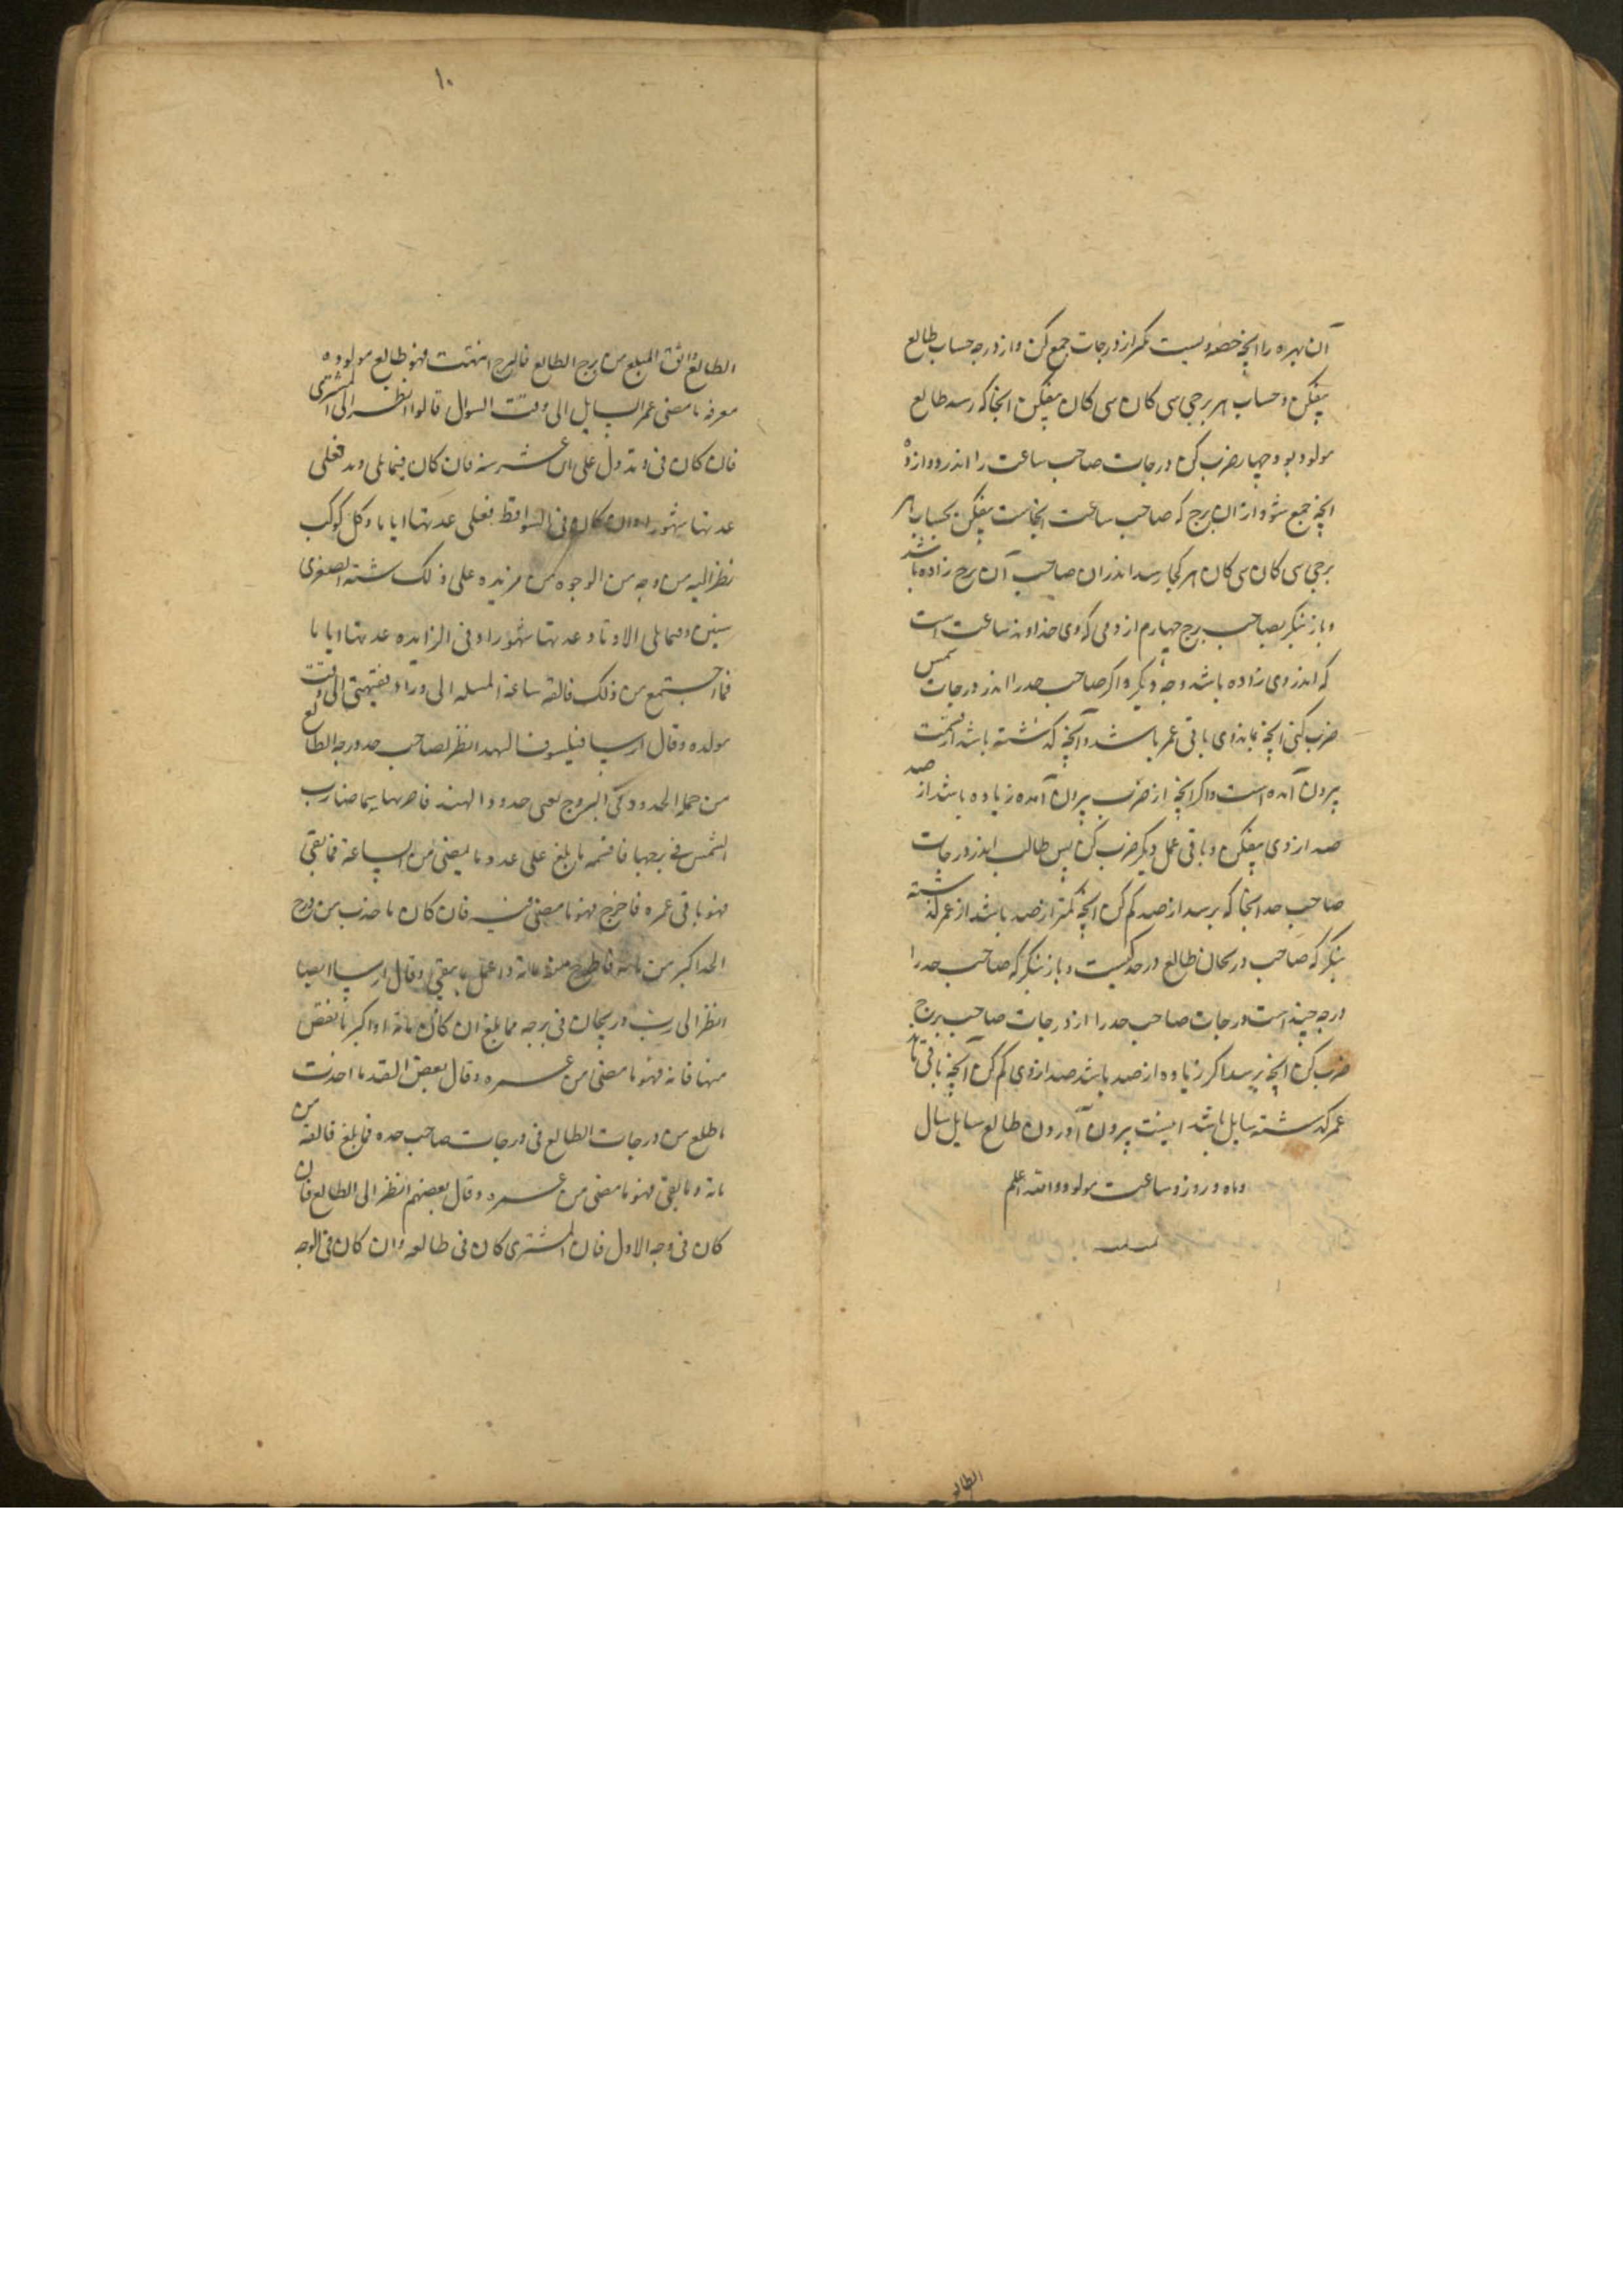 آن بهره را انچه حصه ویست بنگر از درجات جمع کن و از درجه حساب طالع
بیفکن و حساب هر برجی سی کان سی کان بیفکن انجا که رسد طالع
مولود بود و چهار ضرب کن درجات صاحب ساعت را اندر دوازده
انچه جمع شود از ان برج که صاحب ساعت انجاست بیفکن بحساب هر
برجی سی کان سی کان هر کجا رسد اندران صاحب آن برج زاده باشد
و باز بنکر بصاحب برج چهارم از ومی که وی خداوند ساعت است
که اندر وی زاده باشد وجه دیکر و اکر صاحب حد را اندر درجات شمس
ضرب کنی انچه بماند وی باقی عمر باشد و آنچه کذشته باشد از قسمت
بیرون آمده است و اکر انچه از ضرب بیرون آمده زیاده باشد از صد
صد از وی بیفکن و باقی عمل دیکر ضرب کن پس طالب اندر درجات
صاحب حد انجا که برسد از صد کم کن انچه کمتر از صد باشد از عمر کذشته
بنکر که صاحب دریجان طالع در حد کیست و باز بنکر که صاحب حد را
درجه چند است درجات صاحب حد را از درجات صاحب برج
ضرب کن انچه برسد اکر زیاده از صد باشد صد از وی کم کن آنچه باقی ماند
عمر کذشته سایل باشد اینست بیرون آوردن طالع سایل سال
و ماه و روز و ساعت مولود والله اعلم
الطالع
۱۰
الطالع والق المبلغ من برج الطالع فالبرج انتهت فهو طالع مولوده
معرفه ما مضی عمر السایل الی وقت السوال قالوا انظر الی المشتری
فان کان فی وتد دل علی اثنی عشر سنه فان کان فیما یلی وتد فعلی
عدتها شهورا وان کان فی السواقط فعلی عدتها ایاما وکل کوکب
نظر الیه من وجه من الوجوه من مزیده علی ذلک سنته الصغری
سنین وفیما یلی الاوتاد عدتها شهورا وفی الزایده عدتها ایاما
فما اجتمع من ذلک فالقه ساعة المسله الی وراء فینتهی الی وقت
مولده وقال ارسیا فیلسوف الهند انظر لصاحب حد درجه الطالع
من جمله الحدود کی البروج یعنی حدود الهند فاضربها بما صارب
الشمس فی برجها فاقسمه ما بلغ علی عدد ما یمضی من الساعة فما بقی
فهو باقی عمره فما خرج فهو ما مضی منه فان کان ما ضرب من درج
الحد اکبر من مائه فاطرح منه مائة واعمل بما بقی وقال ارسیا ایضا
انظر الی رب دریجان فی برجه فما بلغ ان کان مائه او اکبر ما نقص
منها فانه فهو ما مضی من عمره وقال بعض القدما اخذت
ما طلع من درجات الطالع فی درجات صاحب حده فما بلغ فالقه من
مائة وما بقی فهو ما مضی من عمره وقال بعضهم انظر الی الطالع فان
کان فی وجه الاول فان المشتری کان فی طالعه وان کان فی الوجه